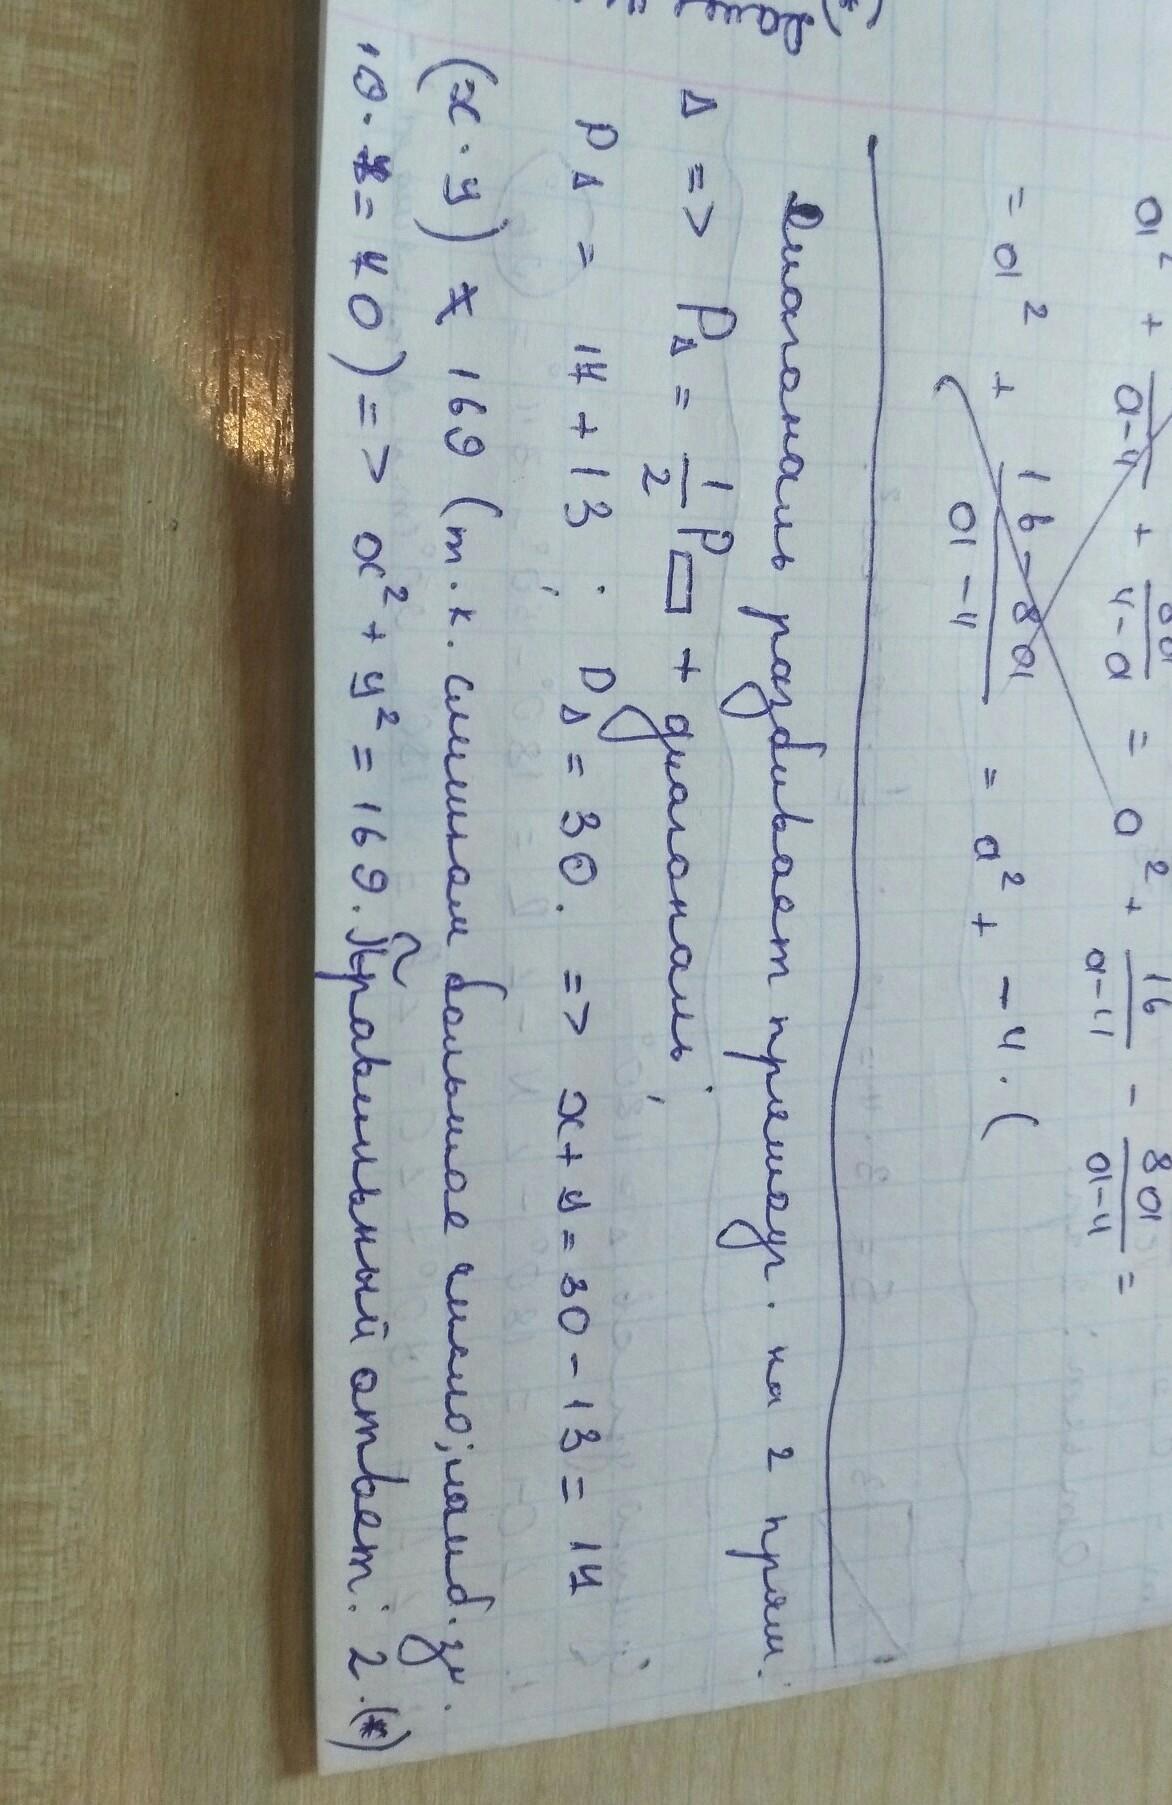 a² + /(a-4) + 8a/(4-a) = a² + 16/(a-4) - 8a/(a-4) =
= a² + (16-8a)/(a-4) = a² + -4 · (
Диагональ разбивает прямоуг. на 2 прям.
Δ => P_Δ = 1/2 P▭ + диагональ;
P_Δ = 14 + 13; P_Δ = 30. => x + y = 30 - 13 = 14
(x · y) ≠ 169 (т.к. слишком большое число; наиб. зн.
10 · 4 = 40) => x² + y² = 169. Правильный ответ: 2.(*)